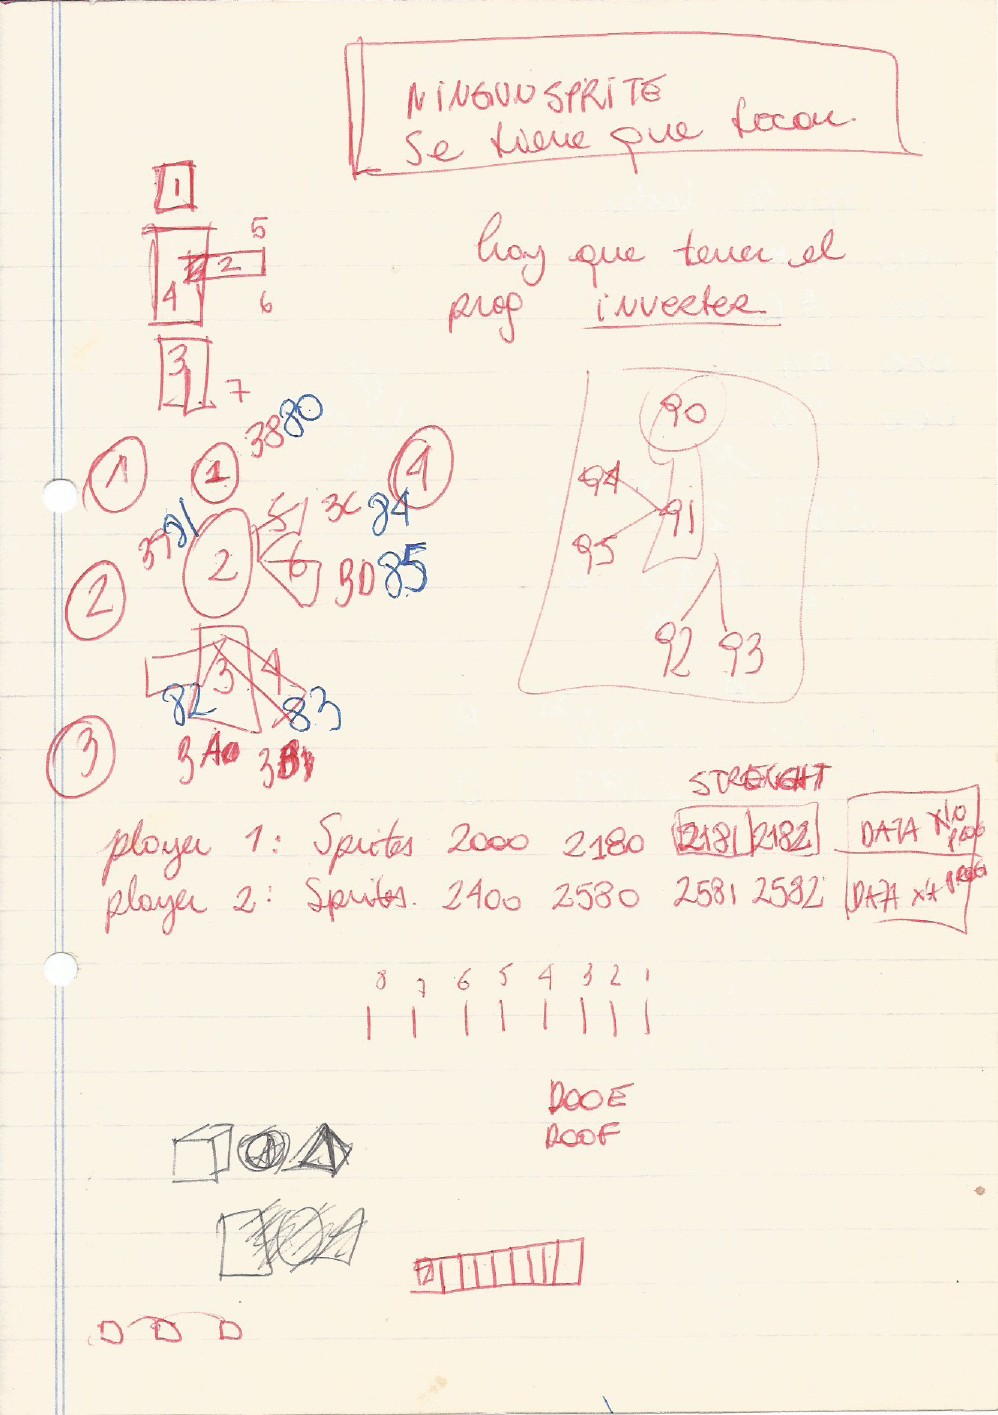 NINGUN SPRITE
Se tiene que tocar.
1
5
2
4
6
3
7
hay que tener el
prog inverter
38 80
1
1
4
90
94
91
95
92
93
39 81
5
3C 84
2
6
3D 85
2
3
4
82
83
3
3A
3B
STRENGHT
player 1: Sprites 2000 2180 2181 2182 DATA x10 PROG
player 2: Sprites. 2400 2580 2581 2582 DATA x7 PROG
8 7 6 5 4 3 2 1
D00E
D00F
D D D